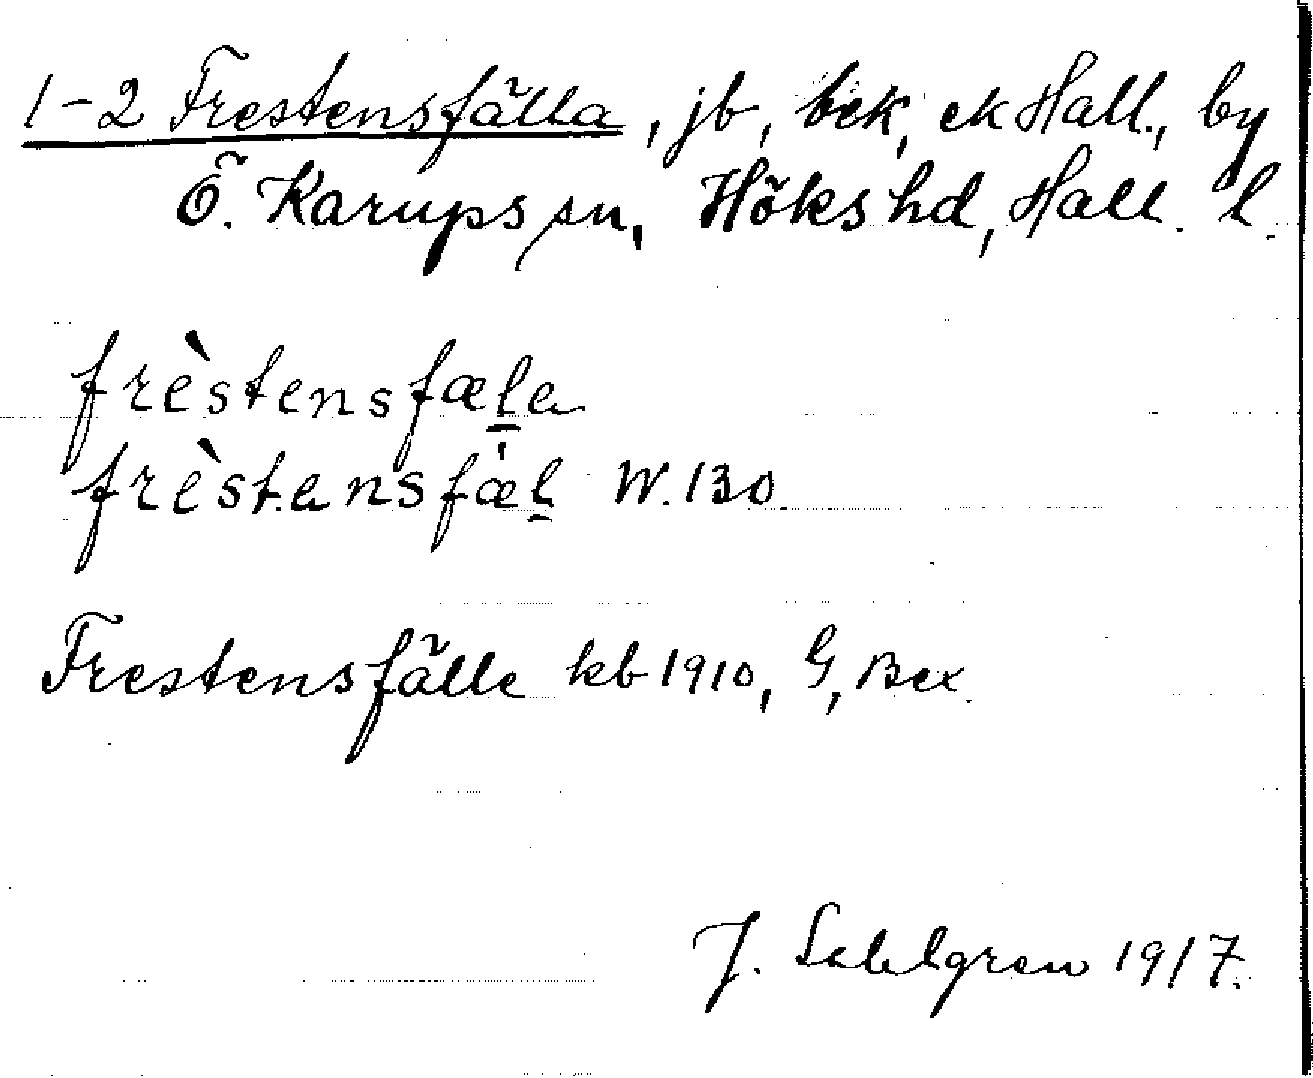 1-2 Frestensfälla, jb, bek, ek Hall., by
Ö. Karups sn, Höks hd, Hall. l.
frèstensfæla
frèstansfæ̀l W. 130
Frestensfälle kb 1910, G, Bex
J. Sahlgren 1917.